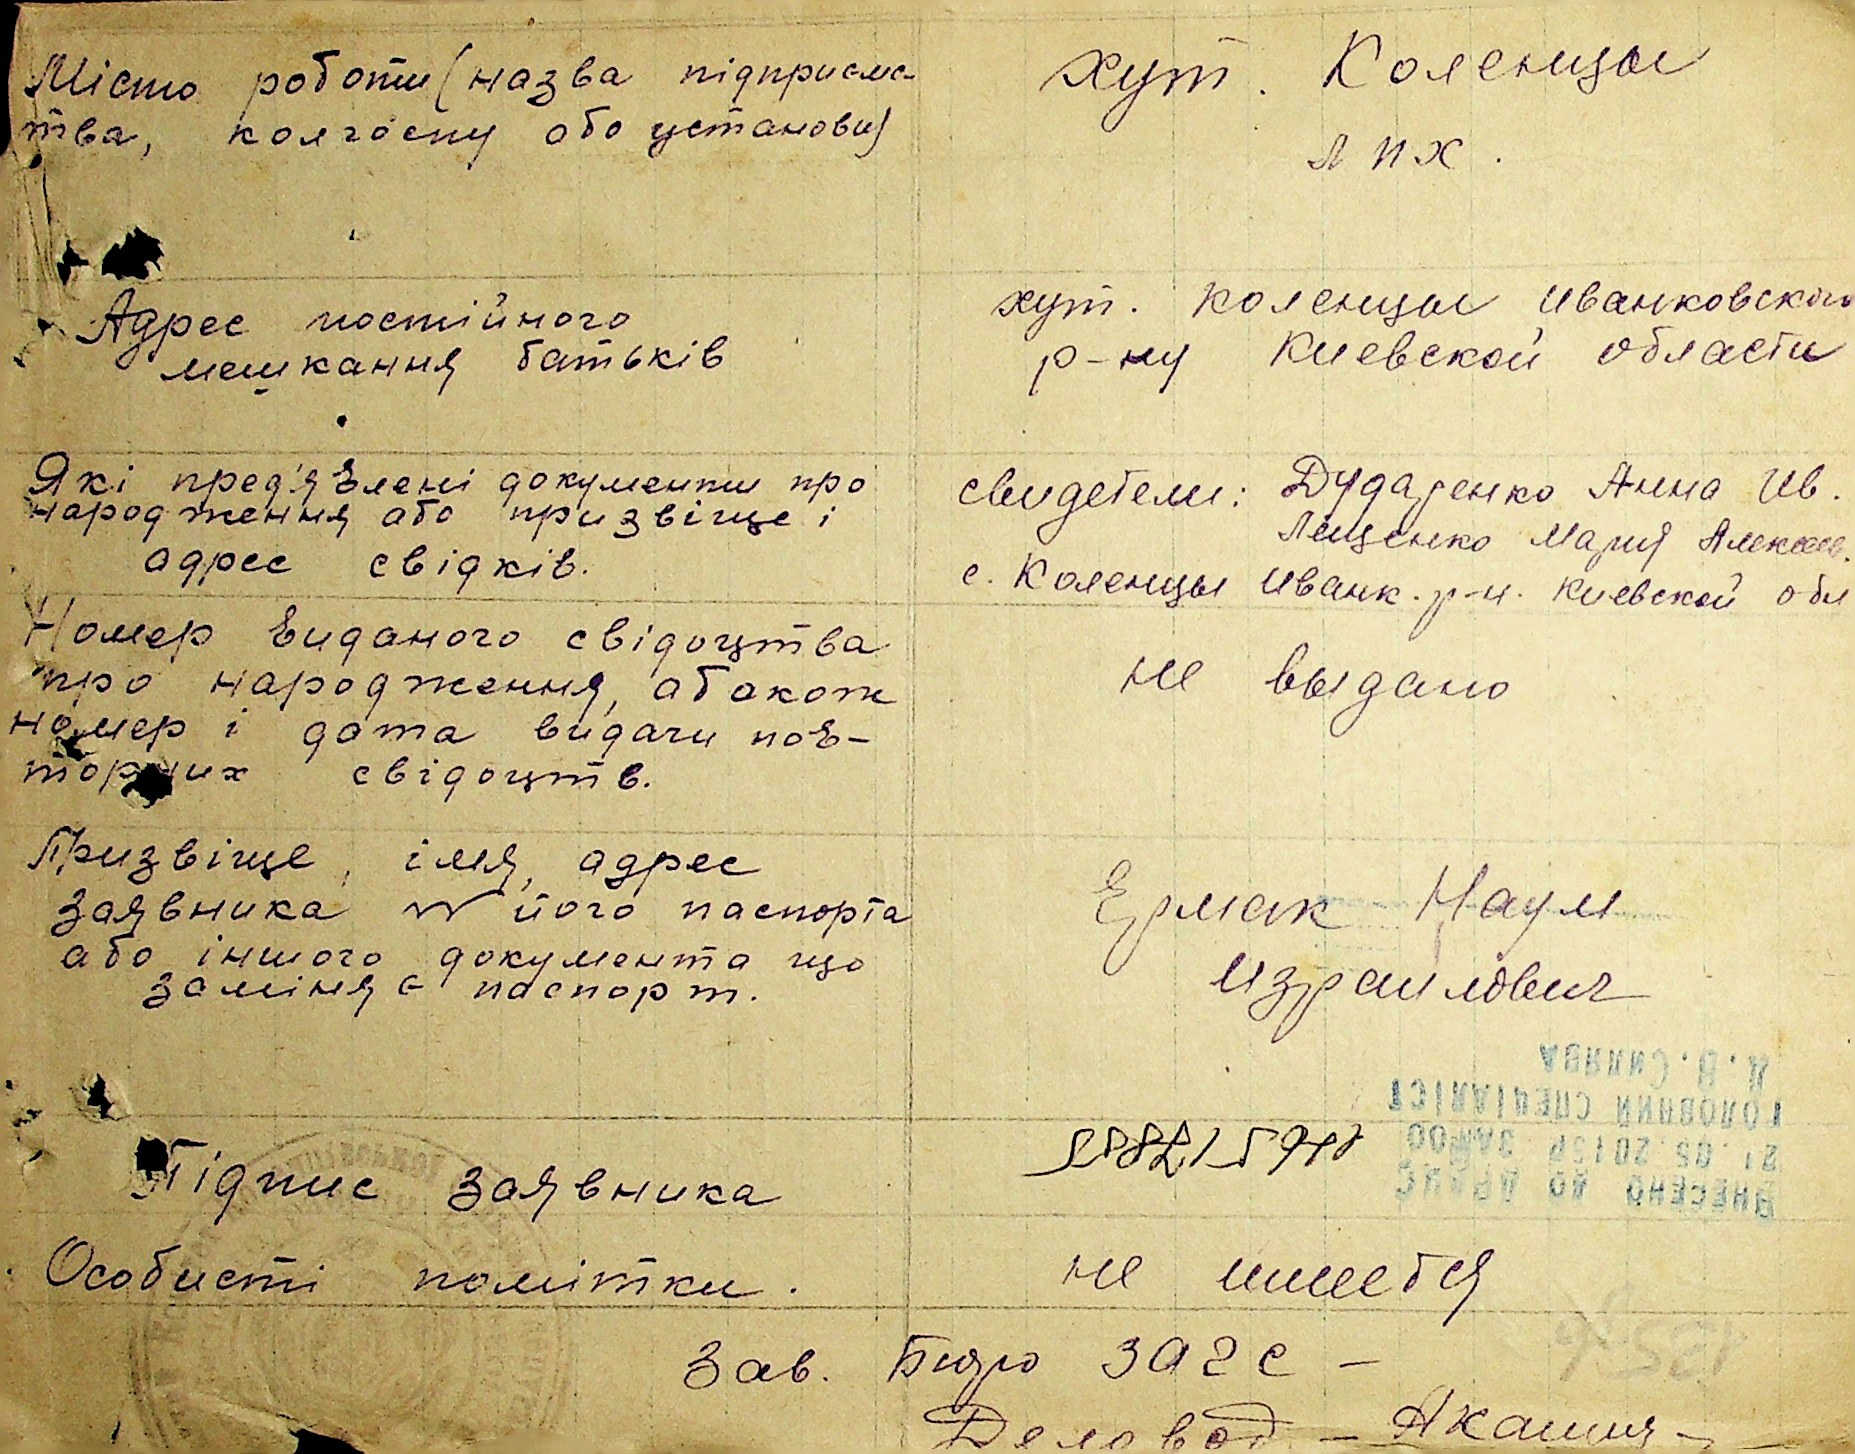 Місто роботи (назва підприємс-
тва, колгоспу або установи)
хут. Коленцы
ЛПХ.
Адрес постійного
мешкання батьків
хут. Коленцы Иванковского
р-ну Киевской области
Які пред'явлені документи про
народження або призвіще і
адрес свідків.
свидетели: Дударенко Анна Ив.
Лещенко Мария Алексеев.
с. Коленцы Иванк. р-н. Киевской обл
Номер виданого свідоцтва
про народження, а бакож
номер і дата видачи пов-
торних свідоцтв.
не выдано
Призвіще, імя, адрес
заявника № його паспорта
або іншого документа що
заміняє паспорт.
Ермак Наум
Израилович
Підпис заявника
ВНЕСЕНО ДО ДРАЦС
21.05.2015р
ГОЛОВНИЙ СПЕЦІАЛІСТ
Особисті помітки.
не имеется
Зав. Бюро ЗАГС –
Деловод –